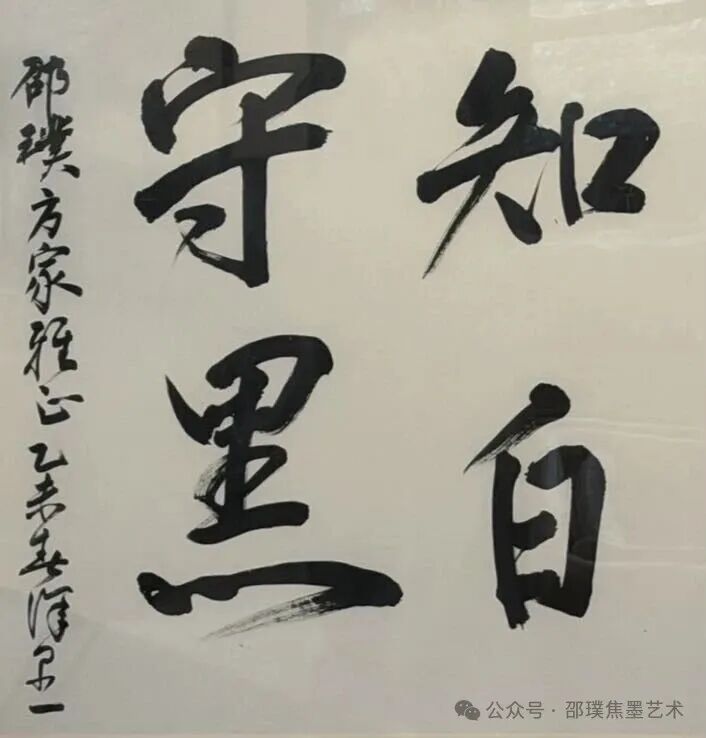 知白
守黑
邵璞方家雅正 乙未春
公众号 · 邵璞焦墨艺术